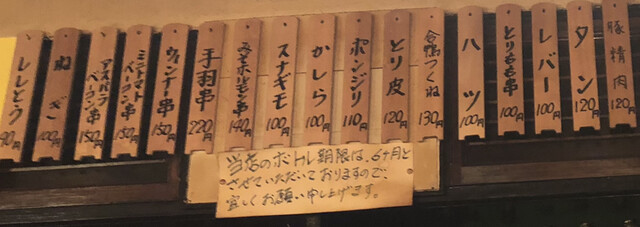 豚精肉 120円
タン 120円
レバー 100円
とりもも串 100円
ハツ 100円
合鴨つくね 130円
とり皮 120円
ボンジリ 110円
かしら 100円
スナギモ 100円
みそホルモン串 140円
手羽串 220円
ウィンナー串 150円
ミニトマトベーコン串 150円
アスパラベーコン串 150円
ねぎ 100円
ししとう 90円
当店のボトル期限は、6ヶ月と
させていただいておりますので、
宜しくお願い申し上げます。